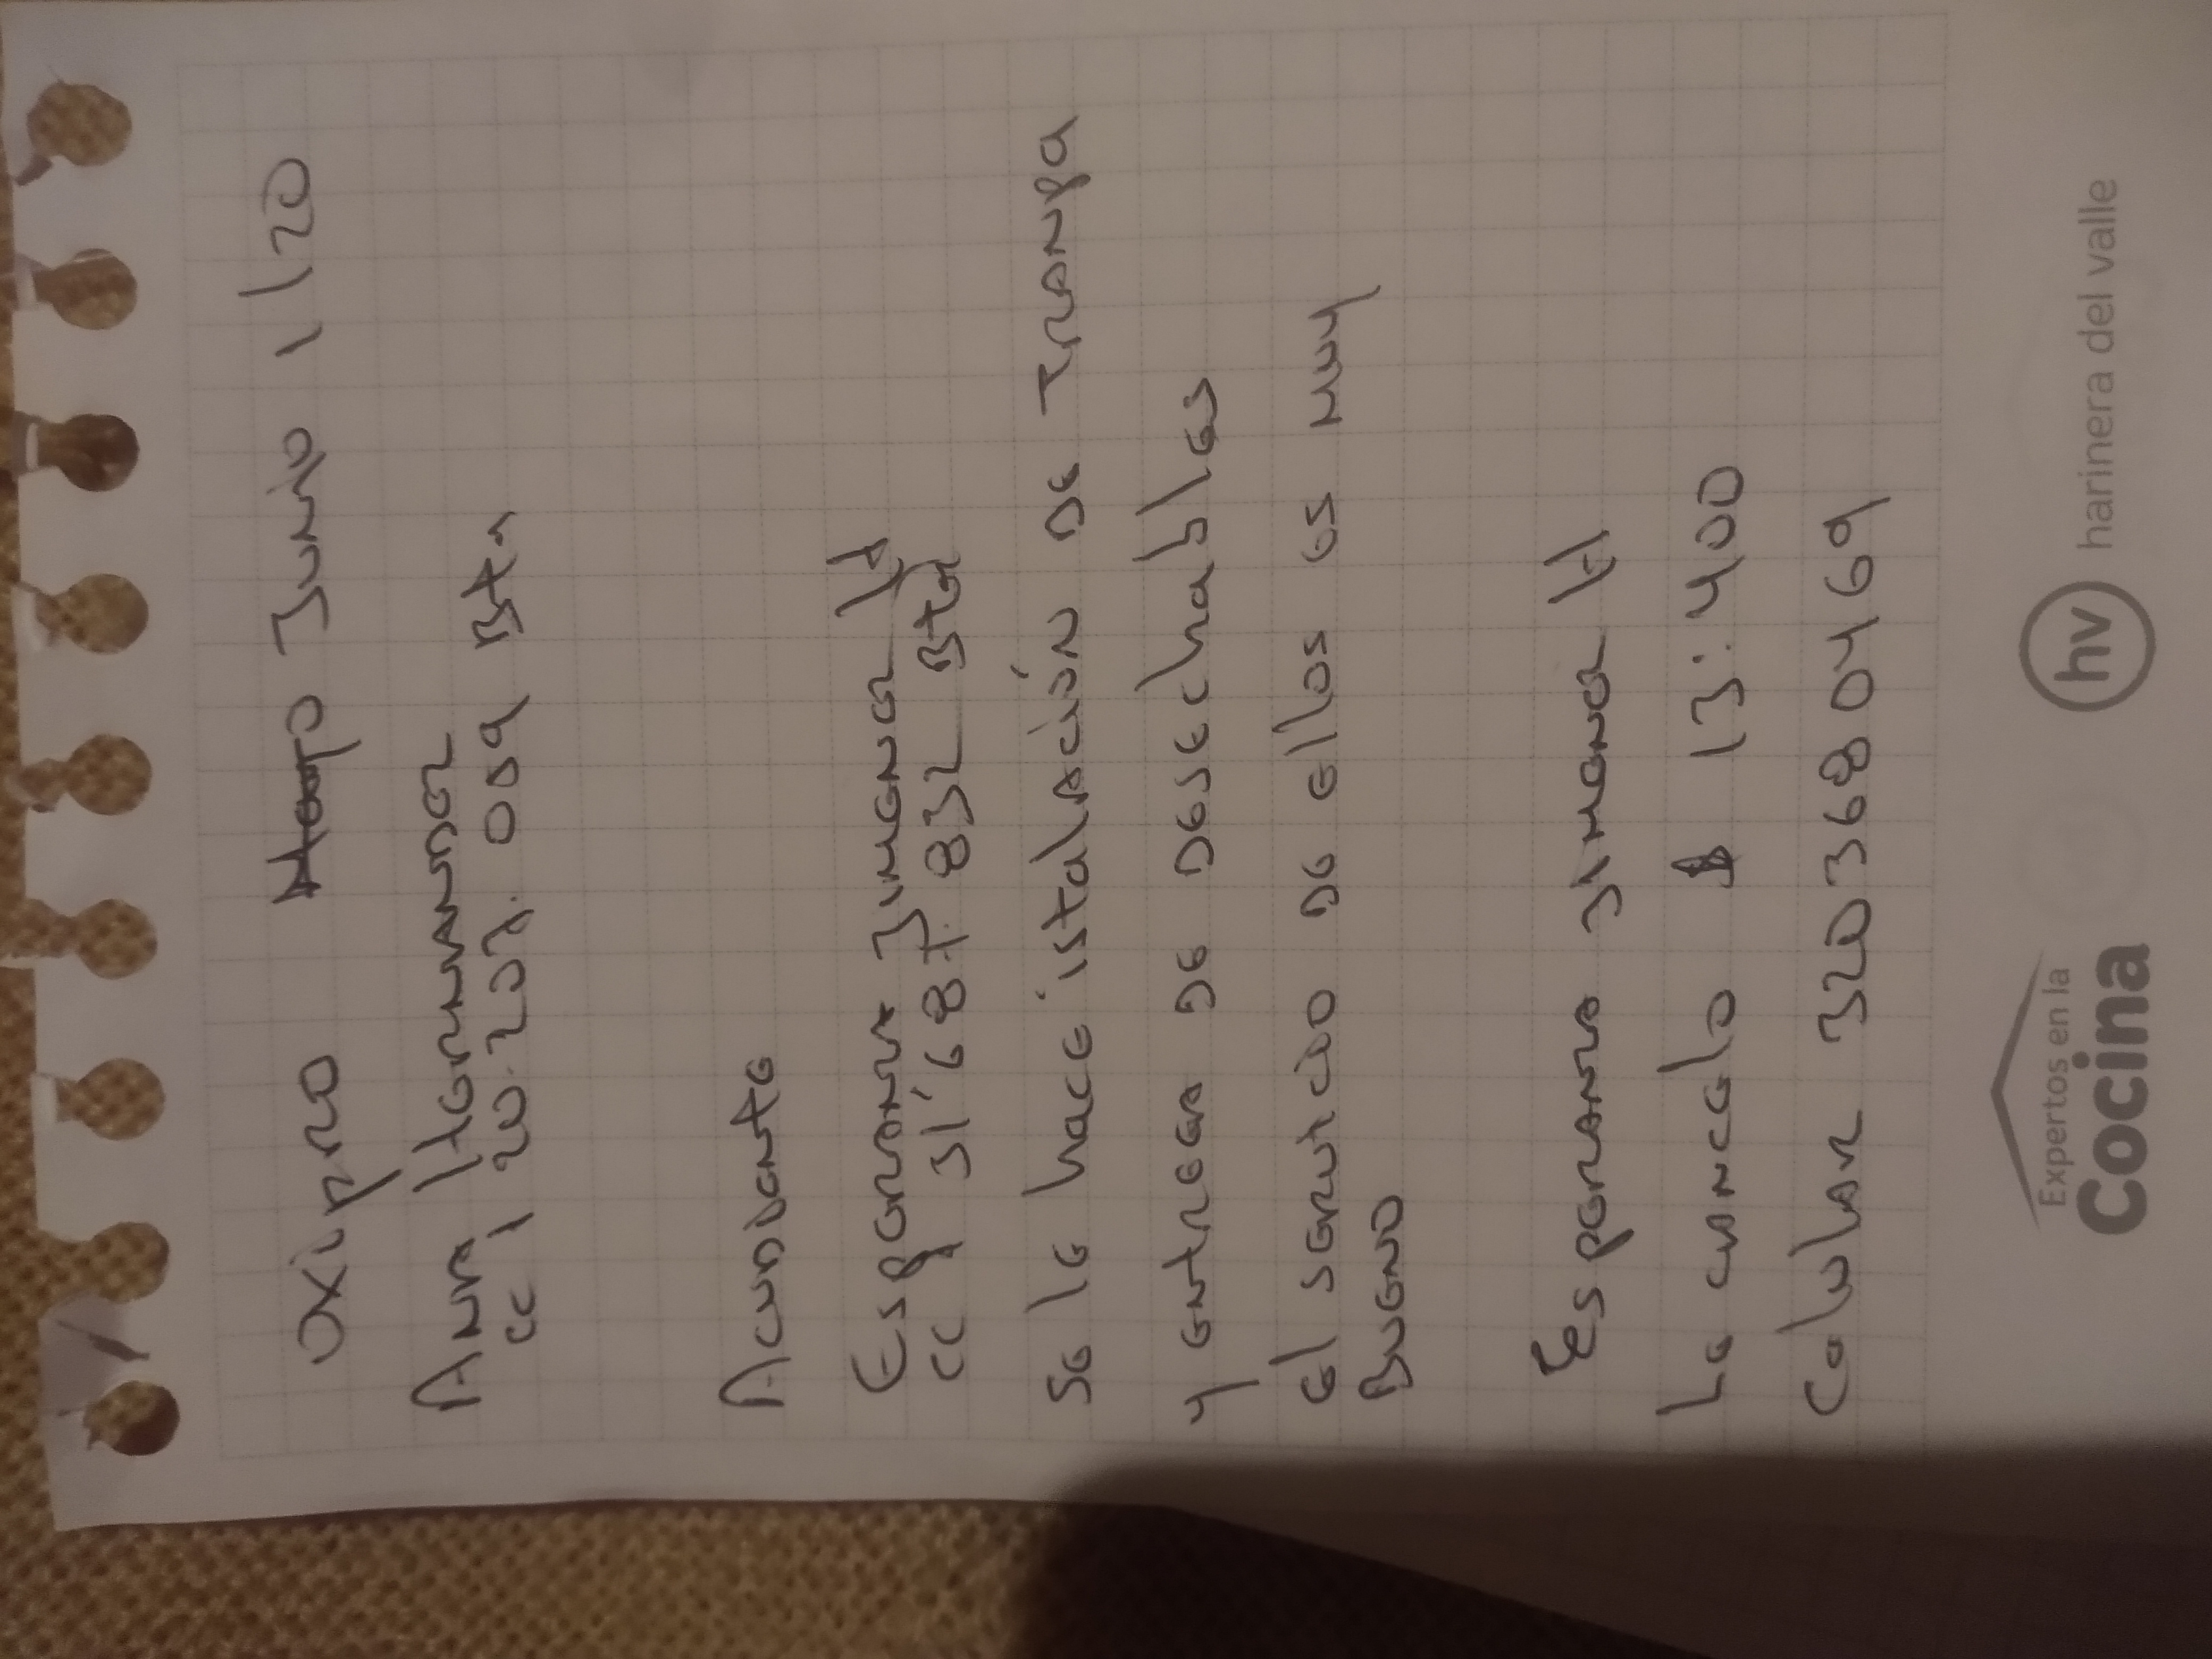 OXipro Junio 1 | 20
Ana Hernandez
CC 20.207.009 Bta
Acudiente
Esperanza Jimenez H
CC 31'687.832 Bta
Se le hace istalación de Trampa
y entrega de Desechables
el servicio de ellos es muy
Bueno
Esperanza Jimenez H
Le cancelo $ 13:400
Celular 3203680469
Expertos en la
Cocina
hv harinera del valle